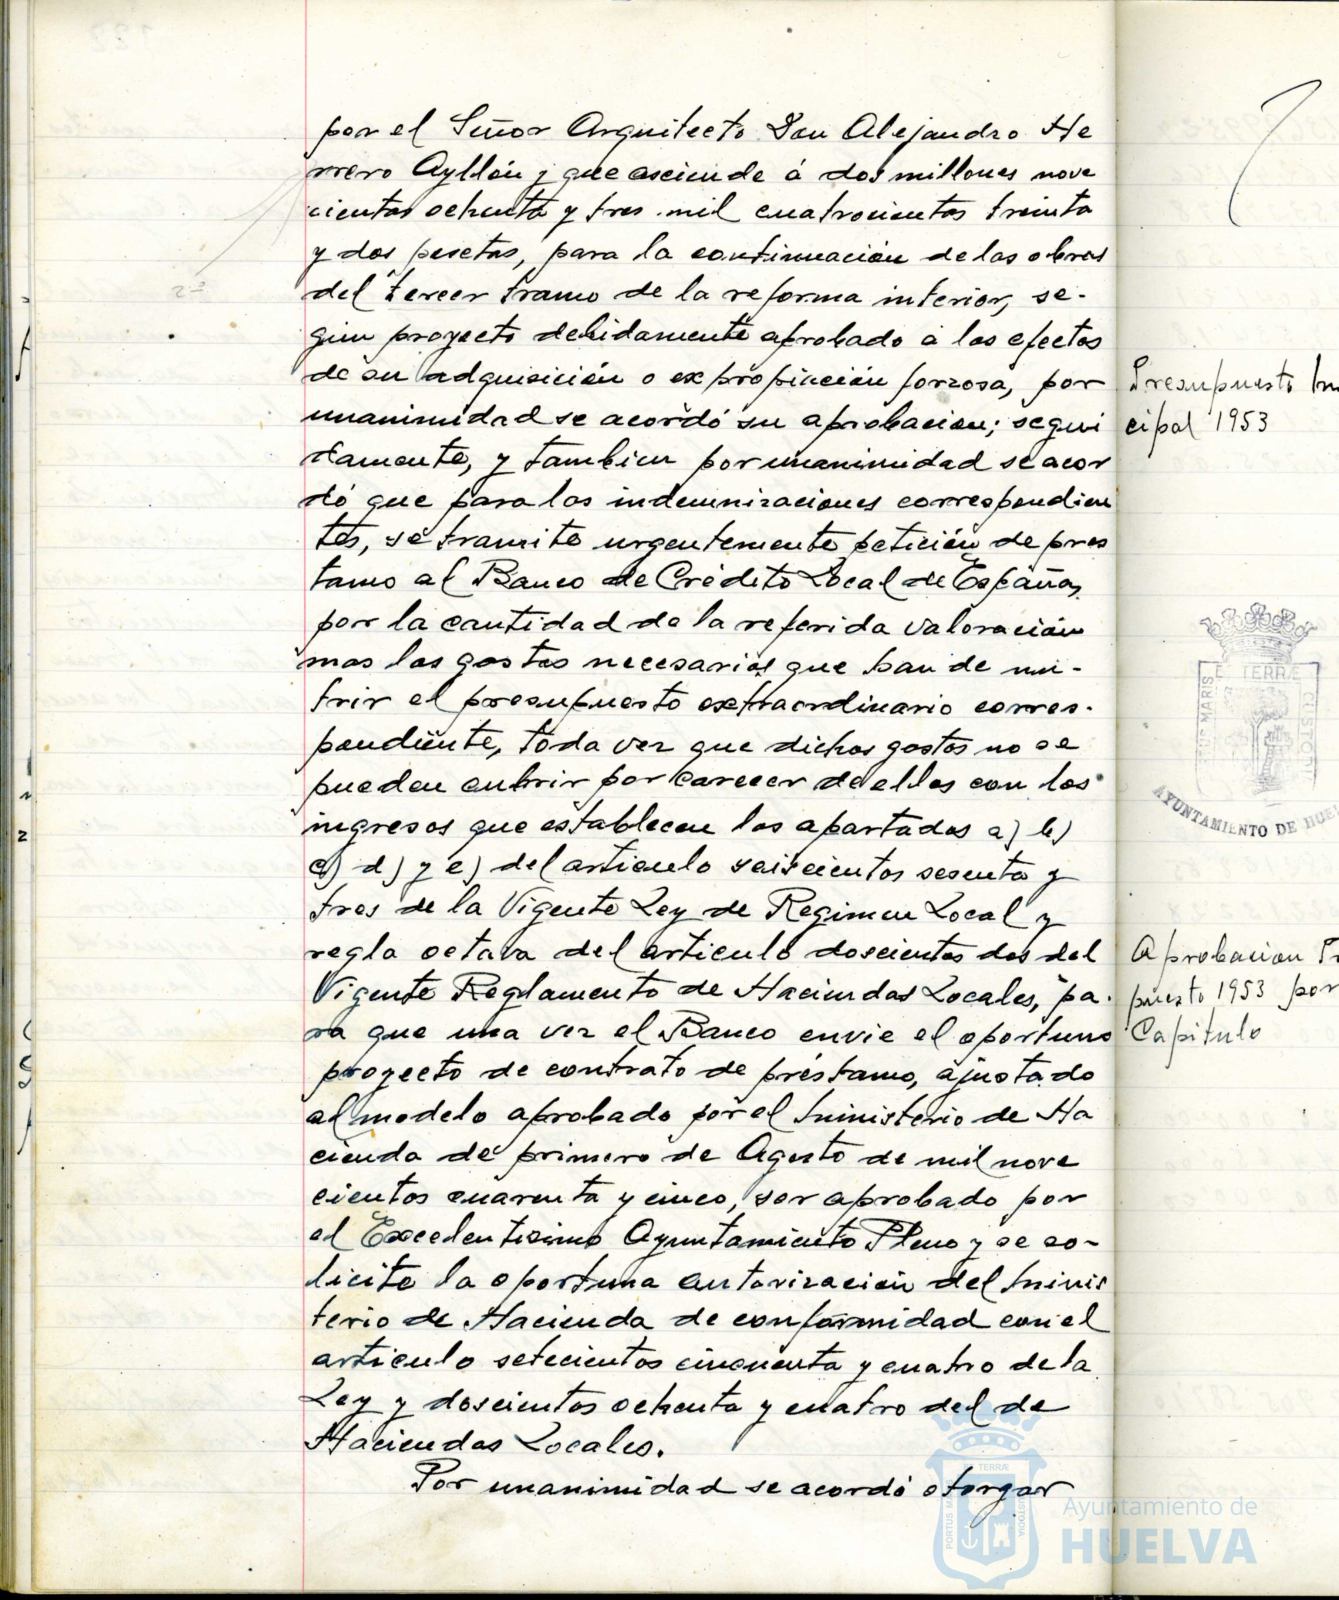 por el Señor Arquitecto Don Alejandro He
rrero Ayllón y que asciende á dos millones nove
cientas ochenta y tres mil cuatrocientas treinta
y dos pesetas, para la continuación de las obras
del tercer tramo de la reforma interior, se-
gún proyecto debidamente aprobado a los efectos
de su adquisición o expropiación forzosa, por
unanimidad se acordó su aprobación; segui
damente, y tambien por unanimidad se acor
dó que para las indemnizaciones correspondien
tes, se tramite urgentemente petición de prés
tamo al Banco de Crédito Local de España,
por la cantidad de la referida valoración
mas los gastos necesarios que han de nu-
trir el presupuesto extraordinario corres-
pondiente, toda vez que dichos gastos no se
pueden cubrir por carecer de ellos con los
ingresos que establecen los apartados a) b)
c) d) y e) del articulo seiscientos sesenta y
tres de la Vigente Ley de Regimen Local y
regla octava del articulo doscientos dos del
Vigente Reglamento de Haciendas Locales, pa-
ra que una vez el Banco envie el oportuno
proyecto de contrato de préstamo, ajustado
al modelo aprobado por el Ministerio de Ha
cienda de primero de Agosto de mil nove
cientos cuarenta y cinco, ser aprobado por
el Excelentisimo Ayuntamiento Pleno y se so-
licite la oportuna autorización del Minis
terio de Hacienda de conformidad con el
articulo setecientos cincuenta y cuatro de la
Ley y doscientos ochenta y cuatro del de
Haciendas Locales.
Por unanimidad se acordó otorgar
Presupuesto Mu
cipal 1953
TERRÆ
MARIS
CUSTODI
AYUNTAMIENTO DE HUEL
Aprobacion Pr
puesto 1953 por
Capitulo
Ayuntamiento de
HUELVA